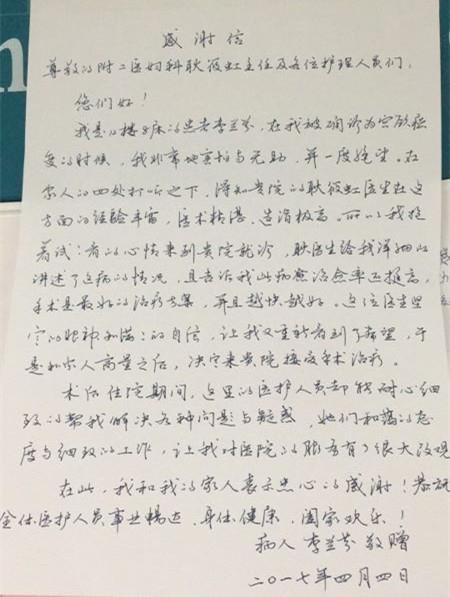 感谢信
尊敬的附二医妇科耿筱虹主任及各位护理人员们，
您们好！
我是八楼8床的患者李兰芬，在我被确诊为宫颈
的时候，我非常地害怕与无助，并一度绝望。在
家人的四处打听之下，得知贵院的耿筱虹医生在这
方面的经验丰富，医术精湛，造诣极高。所以我抱
着试一试的心情来到贵院就诊，耿医生给我详细的
讲述了这病的情况，且告诉我此病愈治愈率还挺高，
手术是最好的治疗方案，并且越快越好。这位医生坚
定的眼神和满满的自信，让我又重新看到了希望，于
是和家人商量之后，决定来贵院接受手术治疗。
术后住院期间，这里的医护人员都能耐心细
致的帮我解决各种问题与疑惑，她们和蔼的态
度与细致的工作，让我对医院的服务有了很大改观
在此，我和我的家人表示忠心的感谢！恭祝
全体医护人员事业畅达，身体健康，阖家欢乐！
病人 李兰芬 敬赠
二〇一七年四月四日